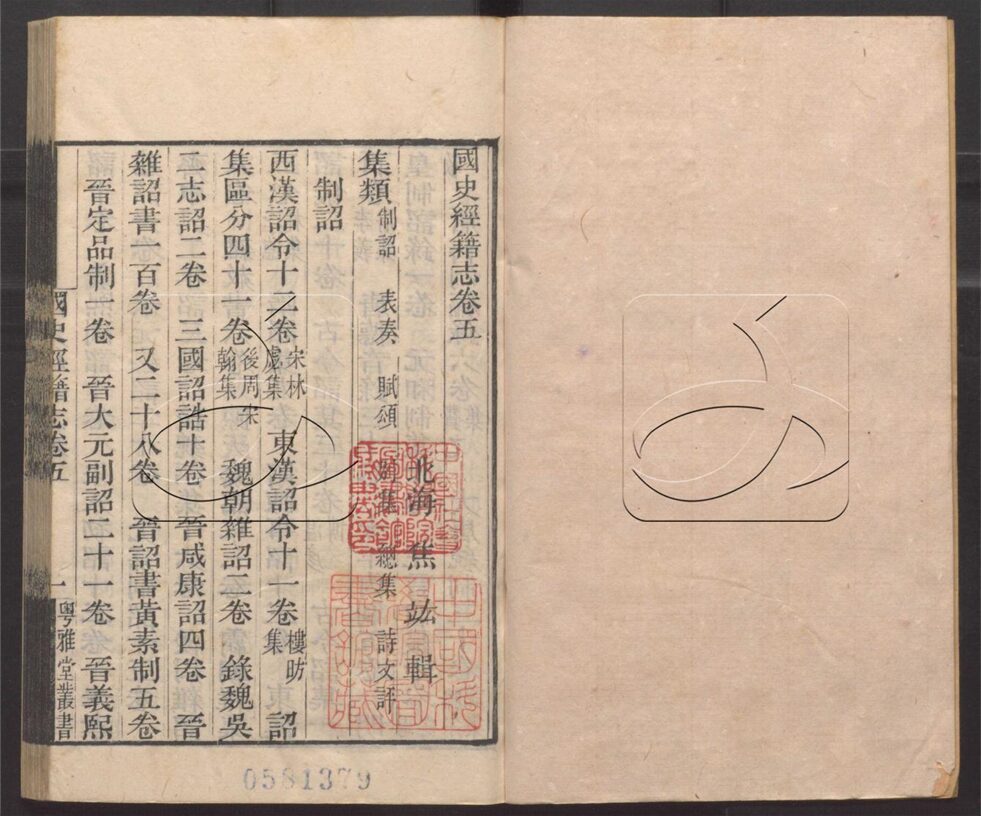 國史經籍志卷五
北海焦竑輯
集類 制詔 表奏 賦頌 別集 總集 詩文評
制詔
西漢詔令十二卷 宋林虙集 東漢詔令十一卷 樓昉集 詔
集區分四十一卷 後周宋翰集 魏朝雜詔二卷 錄魏吳
二志詔二卷 三國詔誥十卷 晉咸康詔四卷 晉
雜詔書一百卷 又二十八卷 晉詔書黃素制五卷
晉定品制一卷 晉太元副詔二十一卷 晉義熙
國史經籍志卷五 一 粵雅堂叢書
0581379